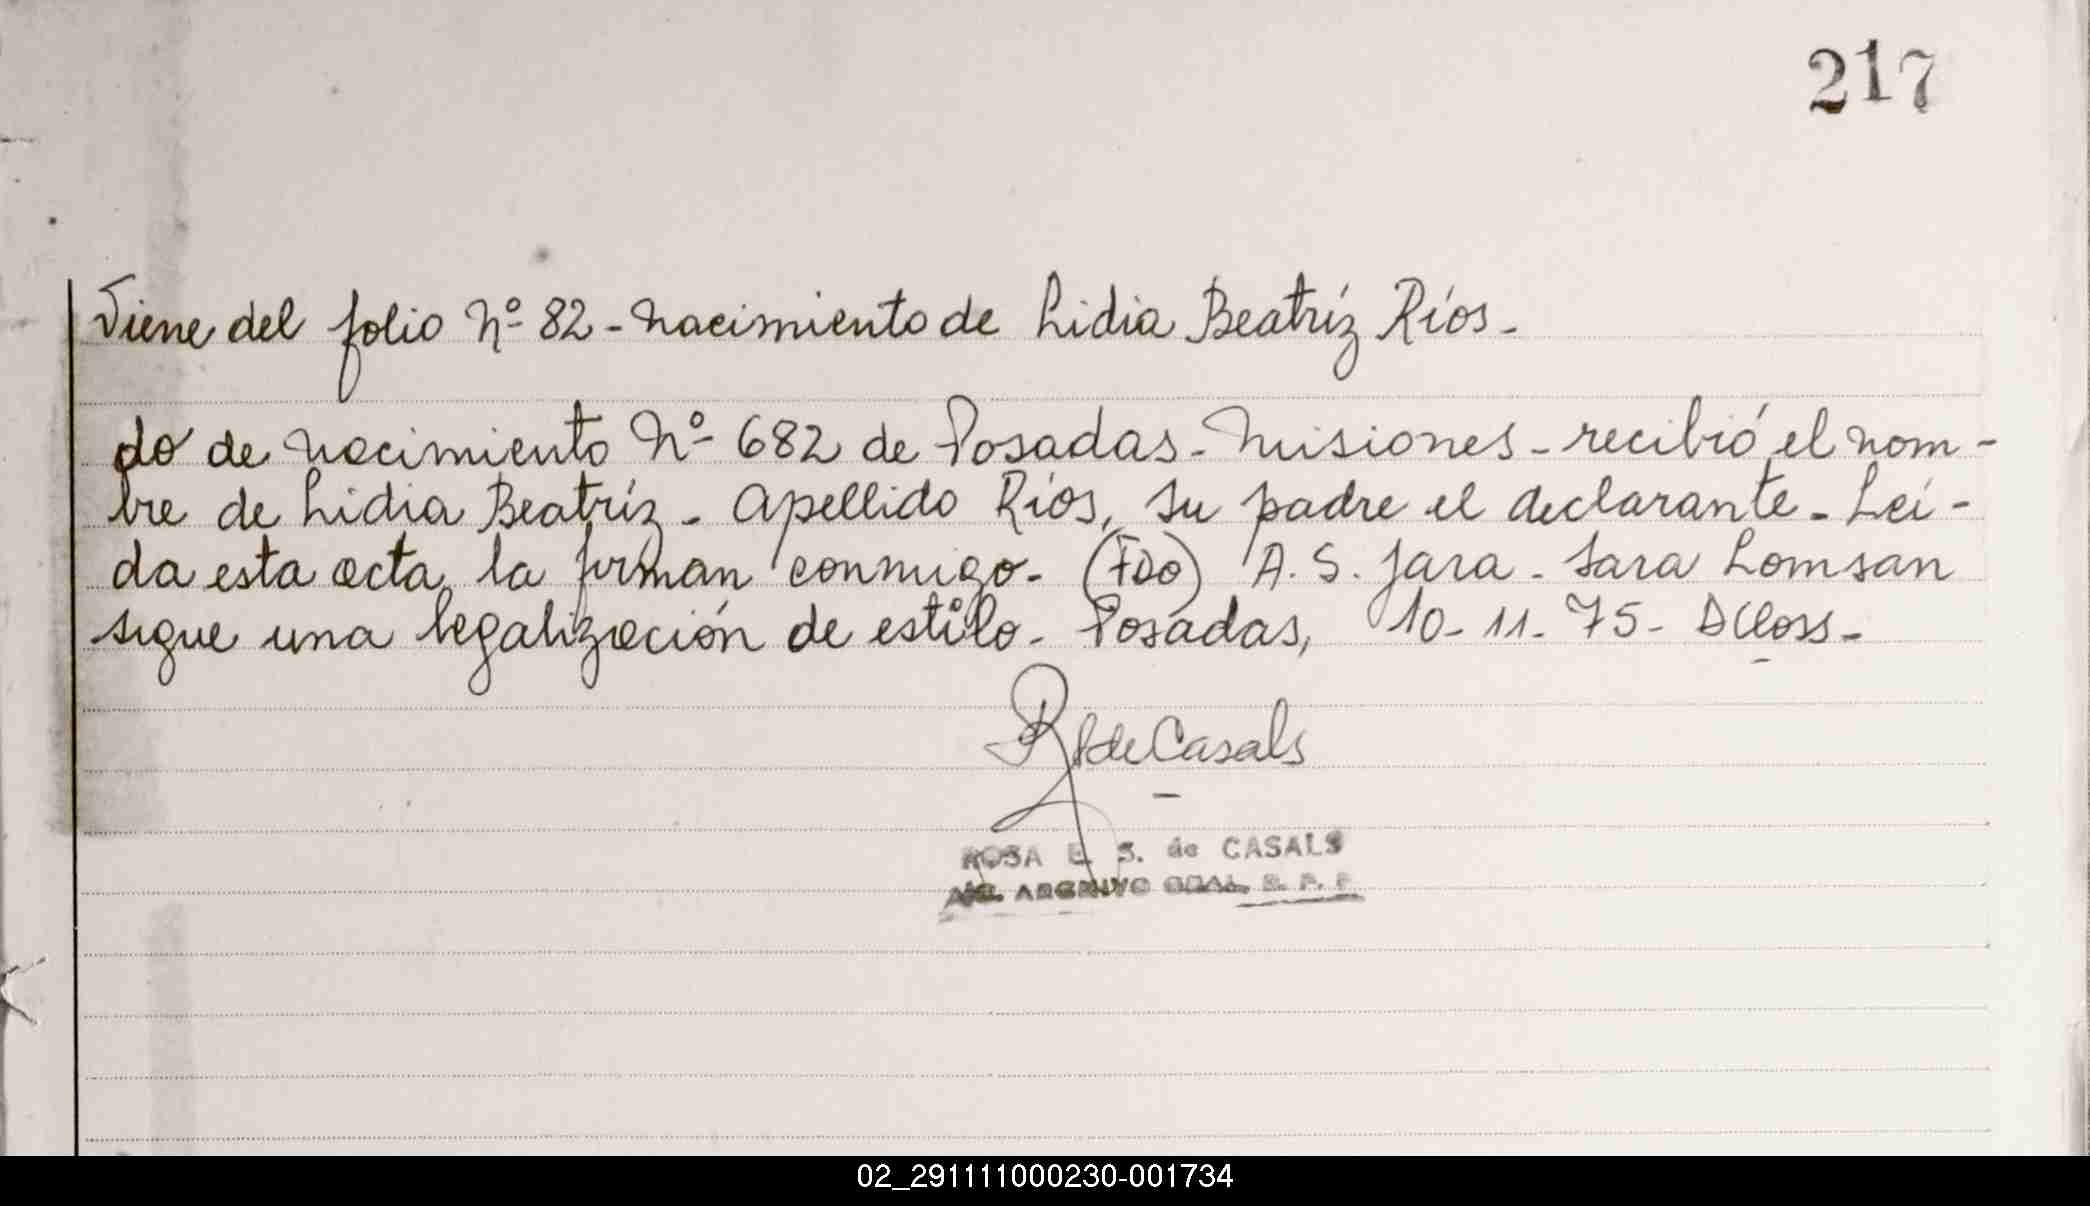 217
Viene del folio Nº 82 - Nacimiento de Lidia Beatríz Ríos.
do de nacimiento Nº 682 de Posadas - Misiones - recibió el nom-
bre de Lidia Beatríz - Apellido Ríos, su padre el declarante - Leí-
da esta acta, la firman conmigo - (FDO) A. S. Jara - Sara Lomsan
sigue una legalización de estilo - Posadas, 10-11-75 - DCloss -
R de Casals
ROSA E. S. de CASALS
ARCHIVO GRAL. R. P. P.
02_291111000230-001734